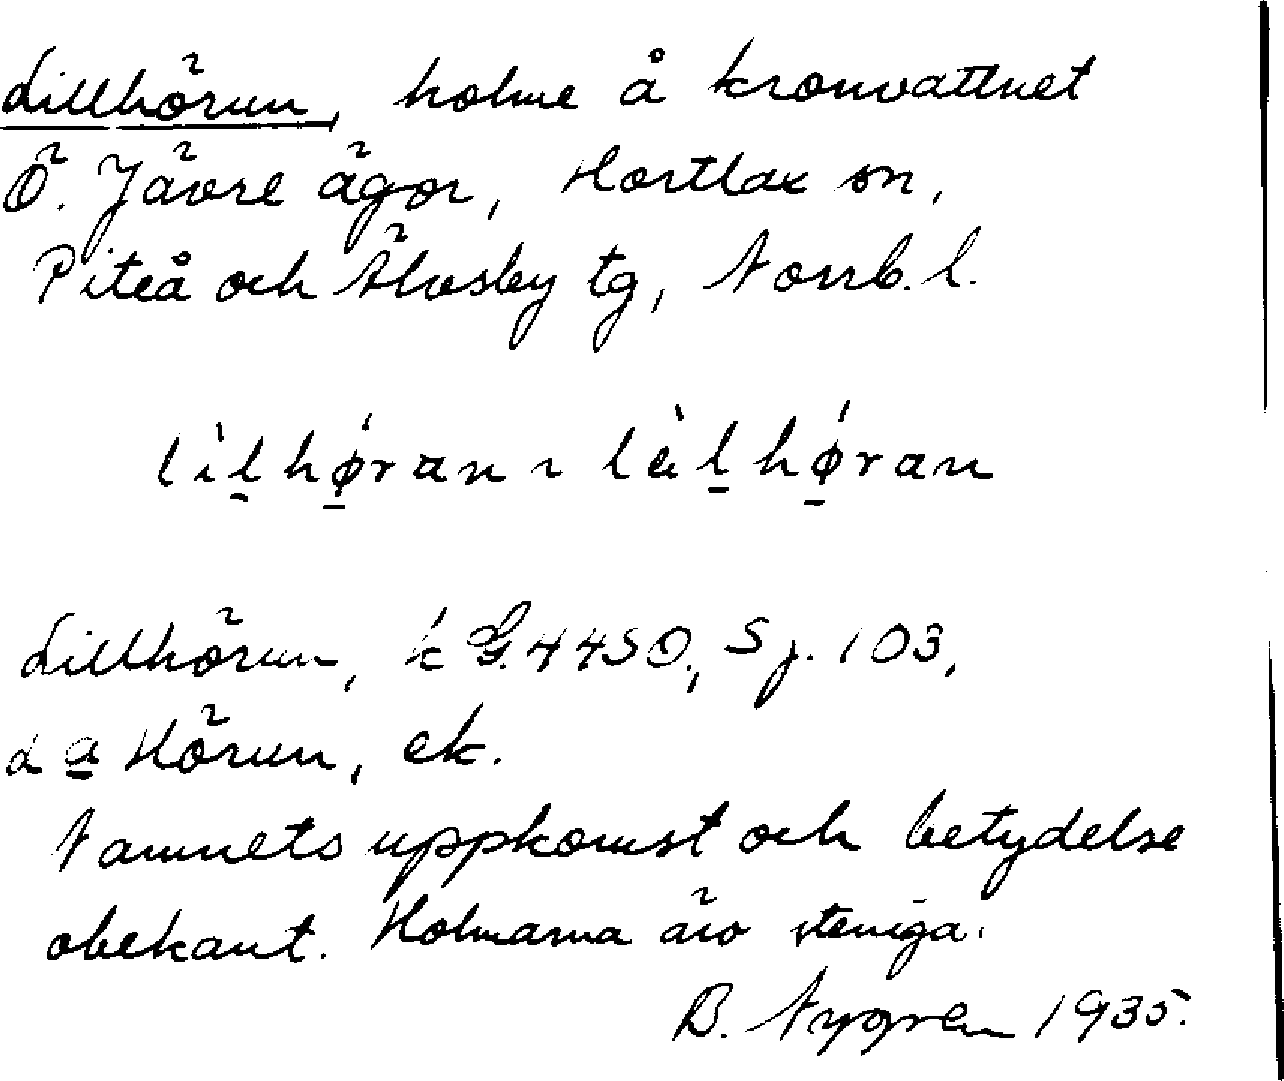 Lillhörun, holme å kronvattnet
Ö. Jävre ägor, Hortlax sn,
Piteå och Älvsby tg, Norrb. l.
lìl̠hǿ̠ran ~ lèl̠hǿ̠ran
Lillhörun, k G. 4450, Sj. 103,
L a Hörun, ek.
Namnets uppkomst och betydelse
obekant. Holmarna äro steniga.
B. Nygren 1935.